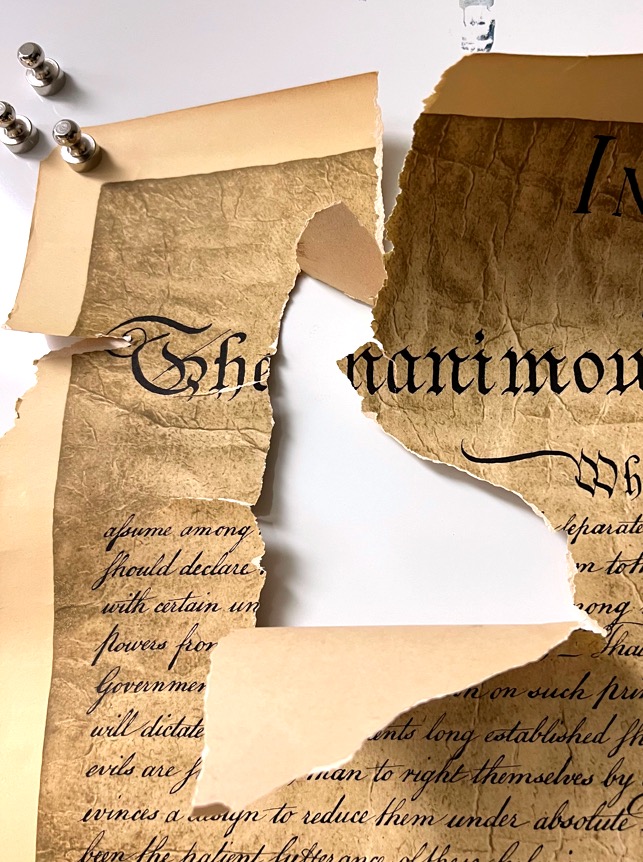 IN
The nanimou
Wh
assume among separate
should declare m to th
with certain un mong
powers from — Tha
Governmen on such prin
will dictate ents long established sh
evils are s man to right themselves by
evinces a design to reduce them under absolute
been the patient sufferance of these